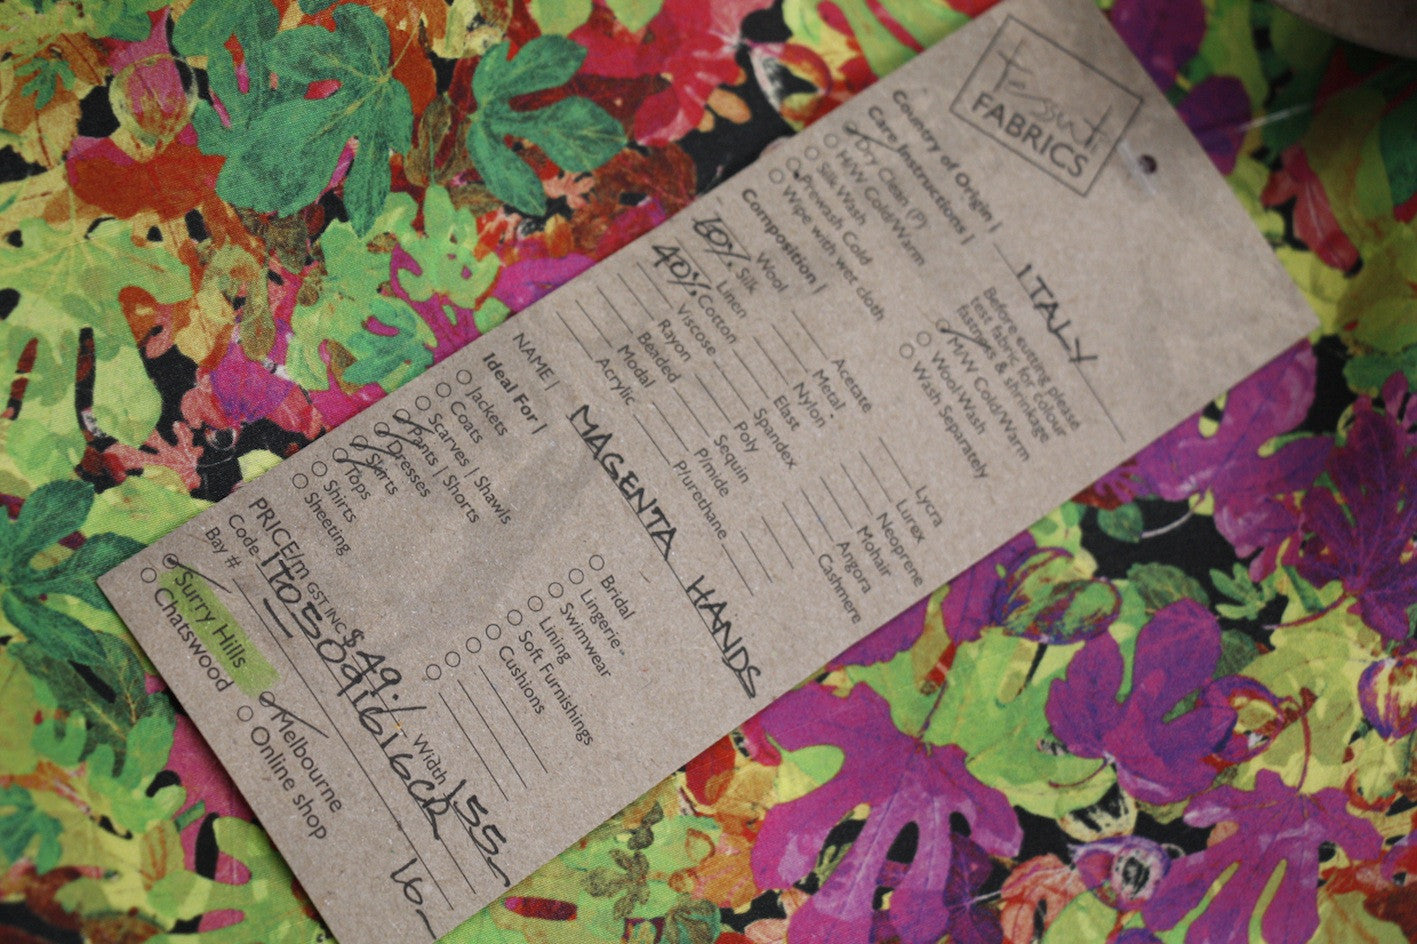 Tessuti
FABRICS
Country of Origin | ITALY
Care Instructions |
Dry Clean (P)
H/W Cold/Warm
Silk Wash
Prewash Cold
Wipe with wet cloth
Before cutting please
test fabric for colour
fastness & shrinkage
M/W Cold/Warm
Wool Wash
Wash Separately
Composition |
Wool
60% Silk
Linen
40% Cotton
Viscose
Rayon
Beaded
Modal
Acrylic
Acetate
Metal
Nylon
Elast
Spandex
Poly
Sequin
P/mide
Plurethane
Lycra
Lurex
Neoprene
Mohair
Angora
Cashmere
NAME | MAGENTA HANDS
Ideal For |
Jackets
Coats
Scarves | Shawls
Pants | Shorts
Dresses
Skirts
Tops
Shirts
Sheeting
Bridal
Lingerie
Swimwear
Lining
Soft Furnishings
Cushions
PRICE/m GST INC $49.- Width 155
Code
Bay # 16
Surry Hills
Chatswood
Melbourne
Online shop